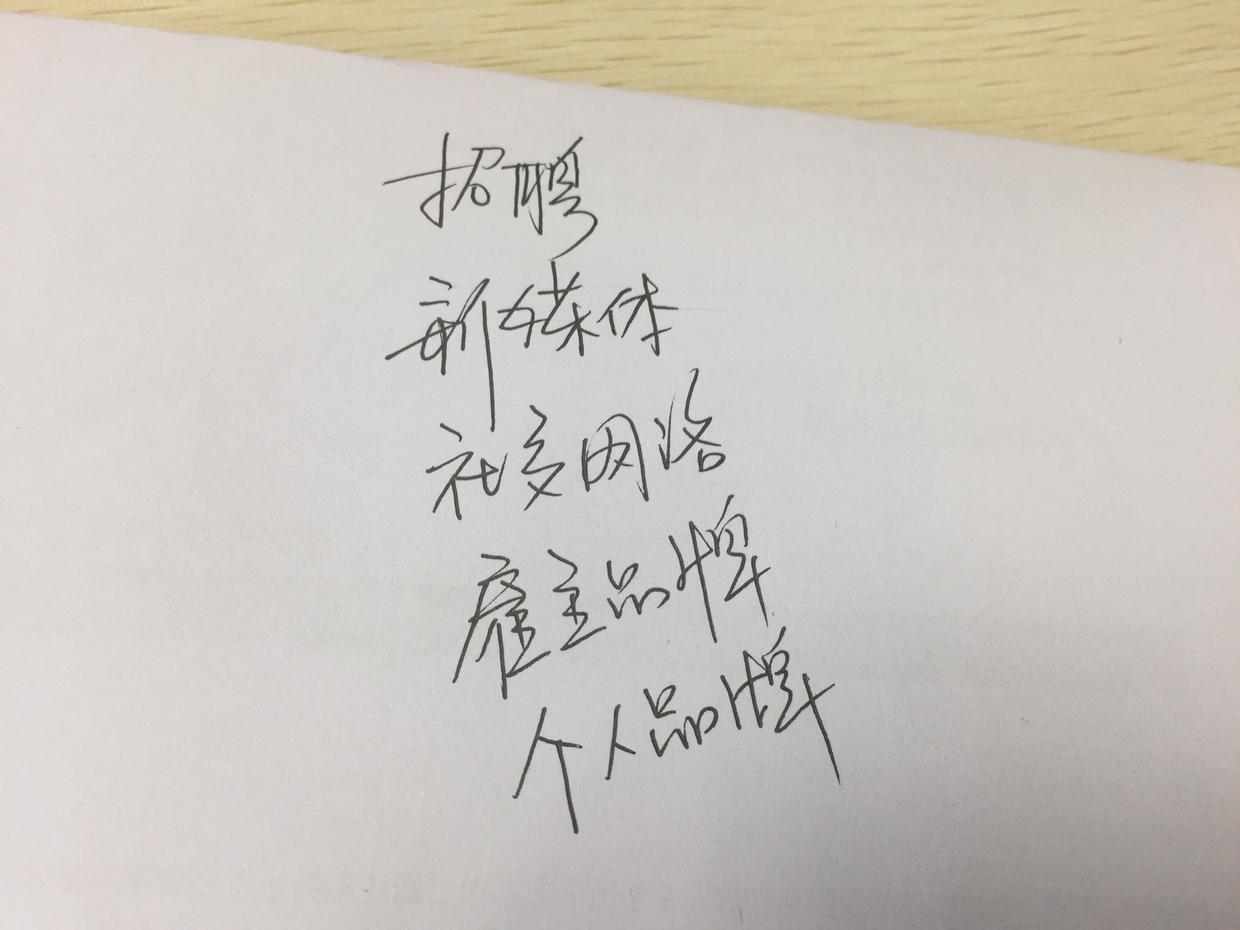 招聘
新媒体
社交网络
雇主品牌
个人品牌